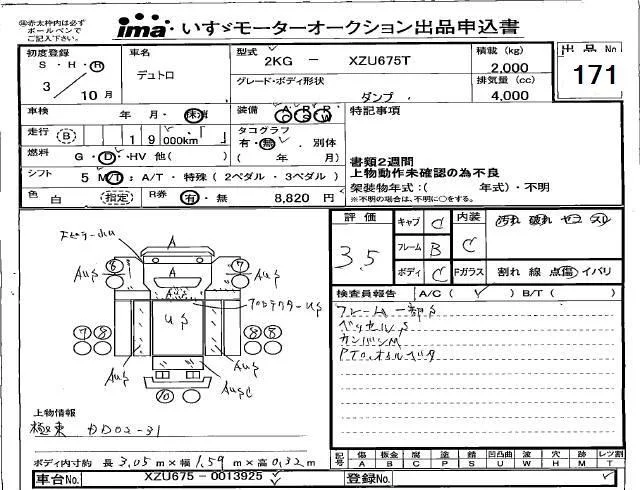 ㊟赤太枠内は必ず
ボールペンで
ご記入下さい。
ima・いすゞモーターオークション出品申込書
初度登録
S・H・R
3/10月
車名
デュトロ
型式
2KG － XZU675T
グレード・ボディ形状
ダンプ
積載 (kg)
2,000
排気量 (cc)
4,000
出品No
171
車検 年 月・抹消
装備 A/C P/S R/W
特記事項
走行 (B) 19 000km
タコグラフ
有・無 別体
( 年 月)
燃料 G・D・HV 他( )
シフト 5 M/T：A/T・特殊(2ペダル・3ペダル)
色 白 (指定)
R券 有・無 8,820 円
書類2週間
上物動作未確認の為不良
架装物年式：( 年式)・不明
※不明の場合は、不明に○をする。
評価
3.5
キャブ C
フレーム B
ボディ C
内装 C
汚れ 破れ ヤコ スレ
Fガラス 割れ 線 点 傷 イバリ
検査員報告 A/C( ✓ ) B/T( )
フレーム一部S
ベッセルS
カンバンM
PTO.オイルベタ
A
A
6
7
AUS
AUS
プロテクターUS
US
7 8
7 8
AUS
AUS
AUSC
10
上物情報
極東 DD02-31
ボディ内寸約 長 3.05 m×幅 1.59 m×高 0.32 m
記号 傷 板金 腐 塗 錆 凹凸曲 波 穴 跡 レツ割
A B C P S U W H M T
車台No. XZU675 - 0013925
登録No.